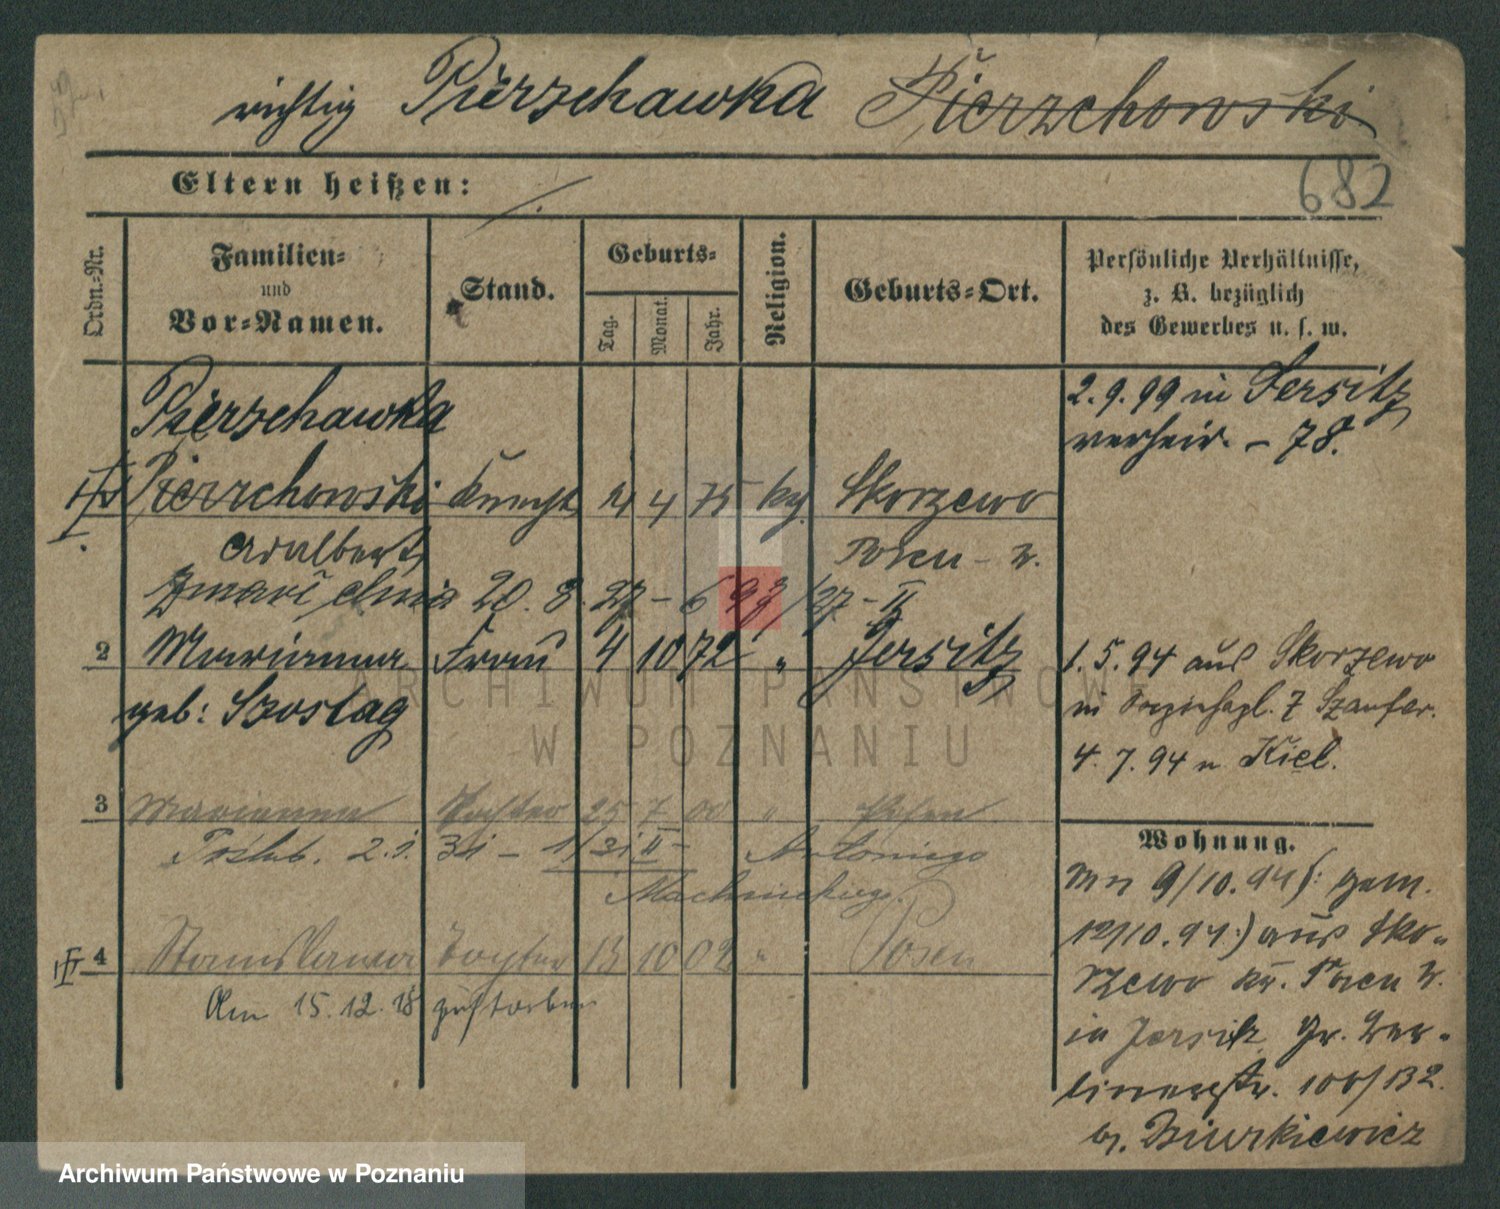 richtig Pierzchawka Pierzchowski
682
Eltern heißen:
Ordn.-Nr.
Familien-
und
Vor-Namen.
Stand.
Geburts-
Tag.
Monat.
Jahr.
Religion.
Geburts-Ort.
Persönliche Verhältnisse,
z. B. bezüglich
des Gewerbes u. s. w.
Pierzchawka
Pierzchowski Knecht 4 75 Skorzewo
Adalbert Posen - W.
Zmarł dnia 20. 8. 27 - 693/27 - II
2 Marianna Frau 4 10 72 " Jersitz
geb: Szostag
3 Marianna Tochter 25 7 00 "
Poślub. 2.1. 31 - 1/31 II - Antoniego
4 Stanislawa Tochter 13 10 02 " Posen
Am 15.12.18 gestorben
2.9.99 in Jersitz
verheir. - 78.
1.5.94 aus Skorzewo
in 7
4.7.94 n. Kiel.
Wohnung.
9/10.94 (: gem.
12/10.94:) aus Sko-
rzewo Kr. Posen W.
in Jersitz Gr. Ber-
linerstr. 100/132
b. Biurkiewicz
ARCHIWUM PAŃSTWOWE
W POZNANIU
Archiwum Państwowe w Poznaniu